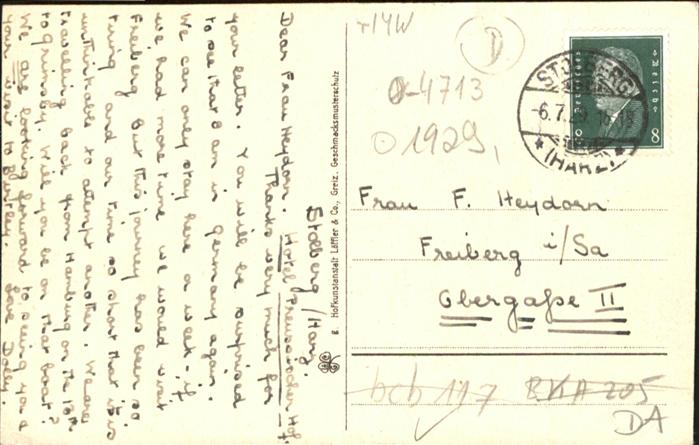 Stolberg/Harz.
Hotel Preussischer Hof.
Dear Frau Heydorn. Thanks very much for
your letter. You will be surprised
to see that I am in Germany again.
We can only stay here a week - if
we had more time we would visit
Freiberg. But this journey has been so
tiring and our time so short that it is
unthinkable to attempt another. We are
travelling back from Hamburg on the 13th
to Grimsby. Will you be on that boat?
We are looking forward to seeing you &
your visit to
Love Dolly.
g. Hofkunstanstalt Löffler & Co., Greiz. Geschmacksmusterschutz
+14W
D
0-4713
0 1929,
STOLBERG
-6.7.29.
* (HARZ) *
Deutsches Reich
8 8
Frau F. Heydorn
Freiberg i/Sa
Obergaße II
bcb 117 BKA 205
DA